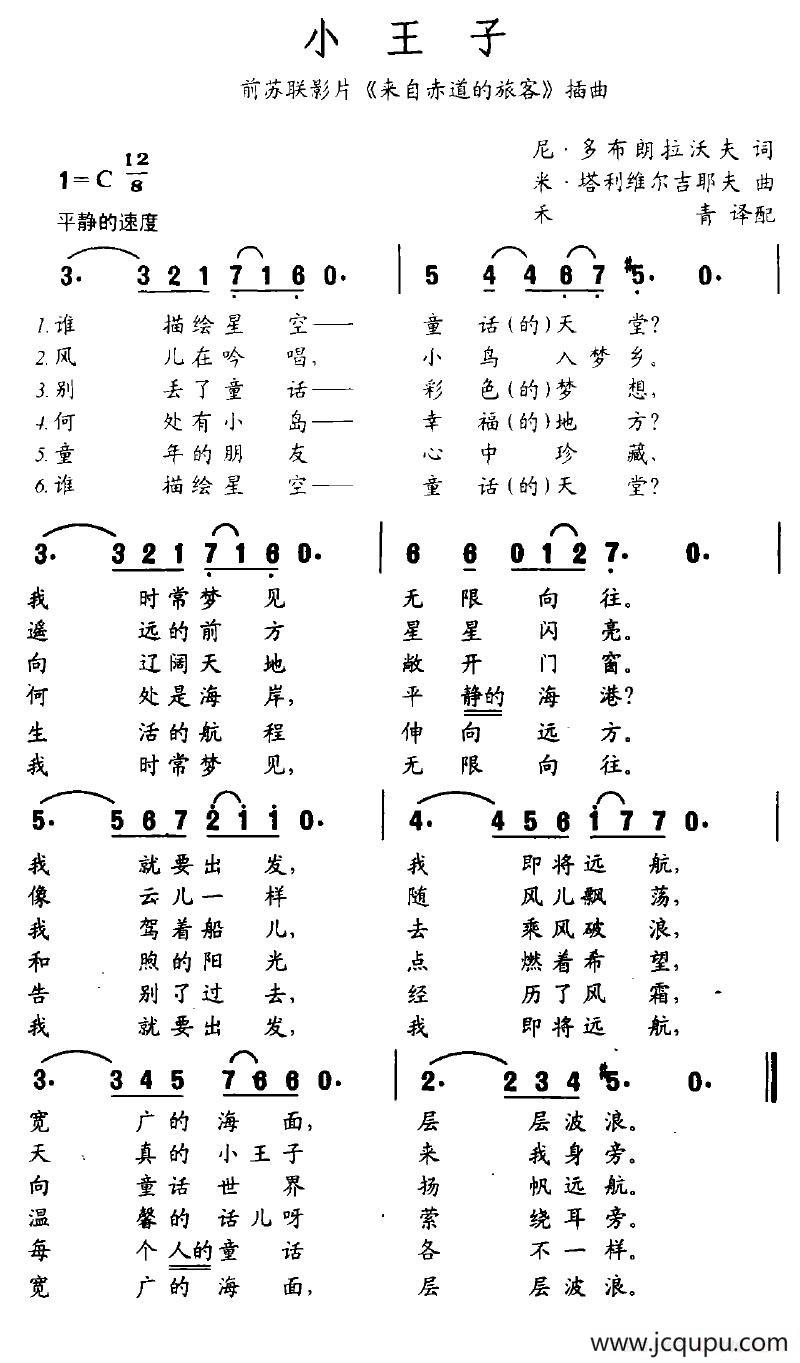 小 王 子
前苏联影片《来自赤道的旅客》插曲
尼·多布朗拉沃夫 词
1=C 12/8
米·塔利维尔吉耶夫 曲
平静的速度
禾 青 译配
3· 3 2 1 7 1 6 0· | 5 4 4 6 7 #5· 0· |
1.谁 描绘星 空—— 童 话(的)天 堂?
2.风 儿在吟 唱, 小 鸟 入梦乡。
3.别 丢了童 话—— 彩 色(的)梦 想,
4.何 处有小 岛—— 幸 福(的)地 方?
5.童 年的朋 友 心 中 珍 藏、
6.谁 描绘星 空—— 童 话(的)天 堂?
3· 3 2 1 7 1 6 0· | 6 6 0 1 2 7· 0· |
我 时常梦 见 无 限 向 往。
遥 远的前 方 星 星 闪 亮。
向 辽阔天 地 敞 开 门 窗。
何 处是海 岸, 平 静的 海 港?
生 活的航 程 伸 向 远 方。
我 时常梦 见, 无 限 向 往。
5· 5 6 7 2 1 1 0· | 4· 4 5 6 1 7 7 0· |
我 就要出 发, 我 即将远 航,
像 云儿一 样 随 风儿飘 荡,
我 驾着船 儿, 去 乘风破 浪,
和 煦的阳 光 点 燃着希 望,
告 别了过 去, 经 历了风 霜,
我 就要出 发, 我 即将远 航,
3· 3 4 5 7 6 6 0· | 2· 2 3 4 #5· 0· ‖
宽 广的 海 面, 层 层波浪。
天 真的 小王子 来 我身旁。
向 童话 世 界 扬 帆远航。
温 馨的 话儿呀 萦 绕耳旁。
每 个人的童 话 各 不一样。
宽 广的 海 面, 层 层波浪。
www.jcqupu.com